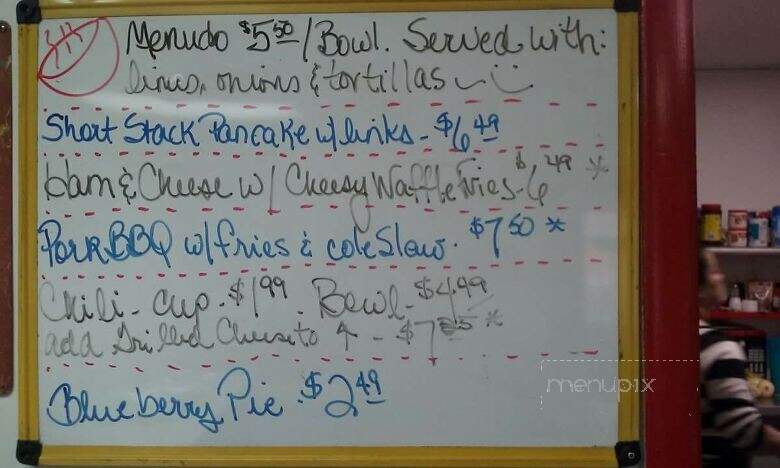 Menudo $5.50 / Bowl. Served with:
limes, onions & tortillas
Short Stack Pancake w/ links - $6.49
Ham & Cheese w/ Cheesy Waffle Fries - $6.49 *
Pork BBQ w/ fries & cole Slaw. $7.50 *
Chili - cup. $1.99. Bowl - $4.99
add Grilled Cheese to ↑ - $7.25 *
Blueberry Pie. $2.49
menupix